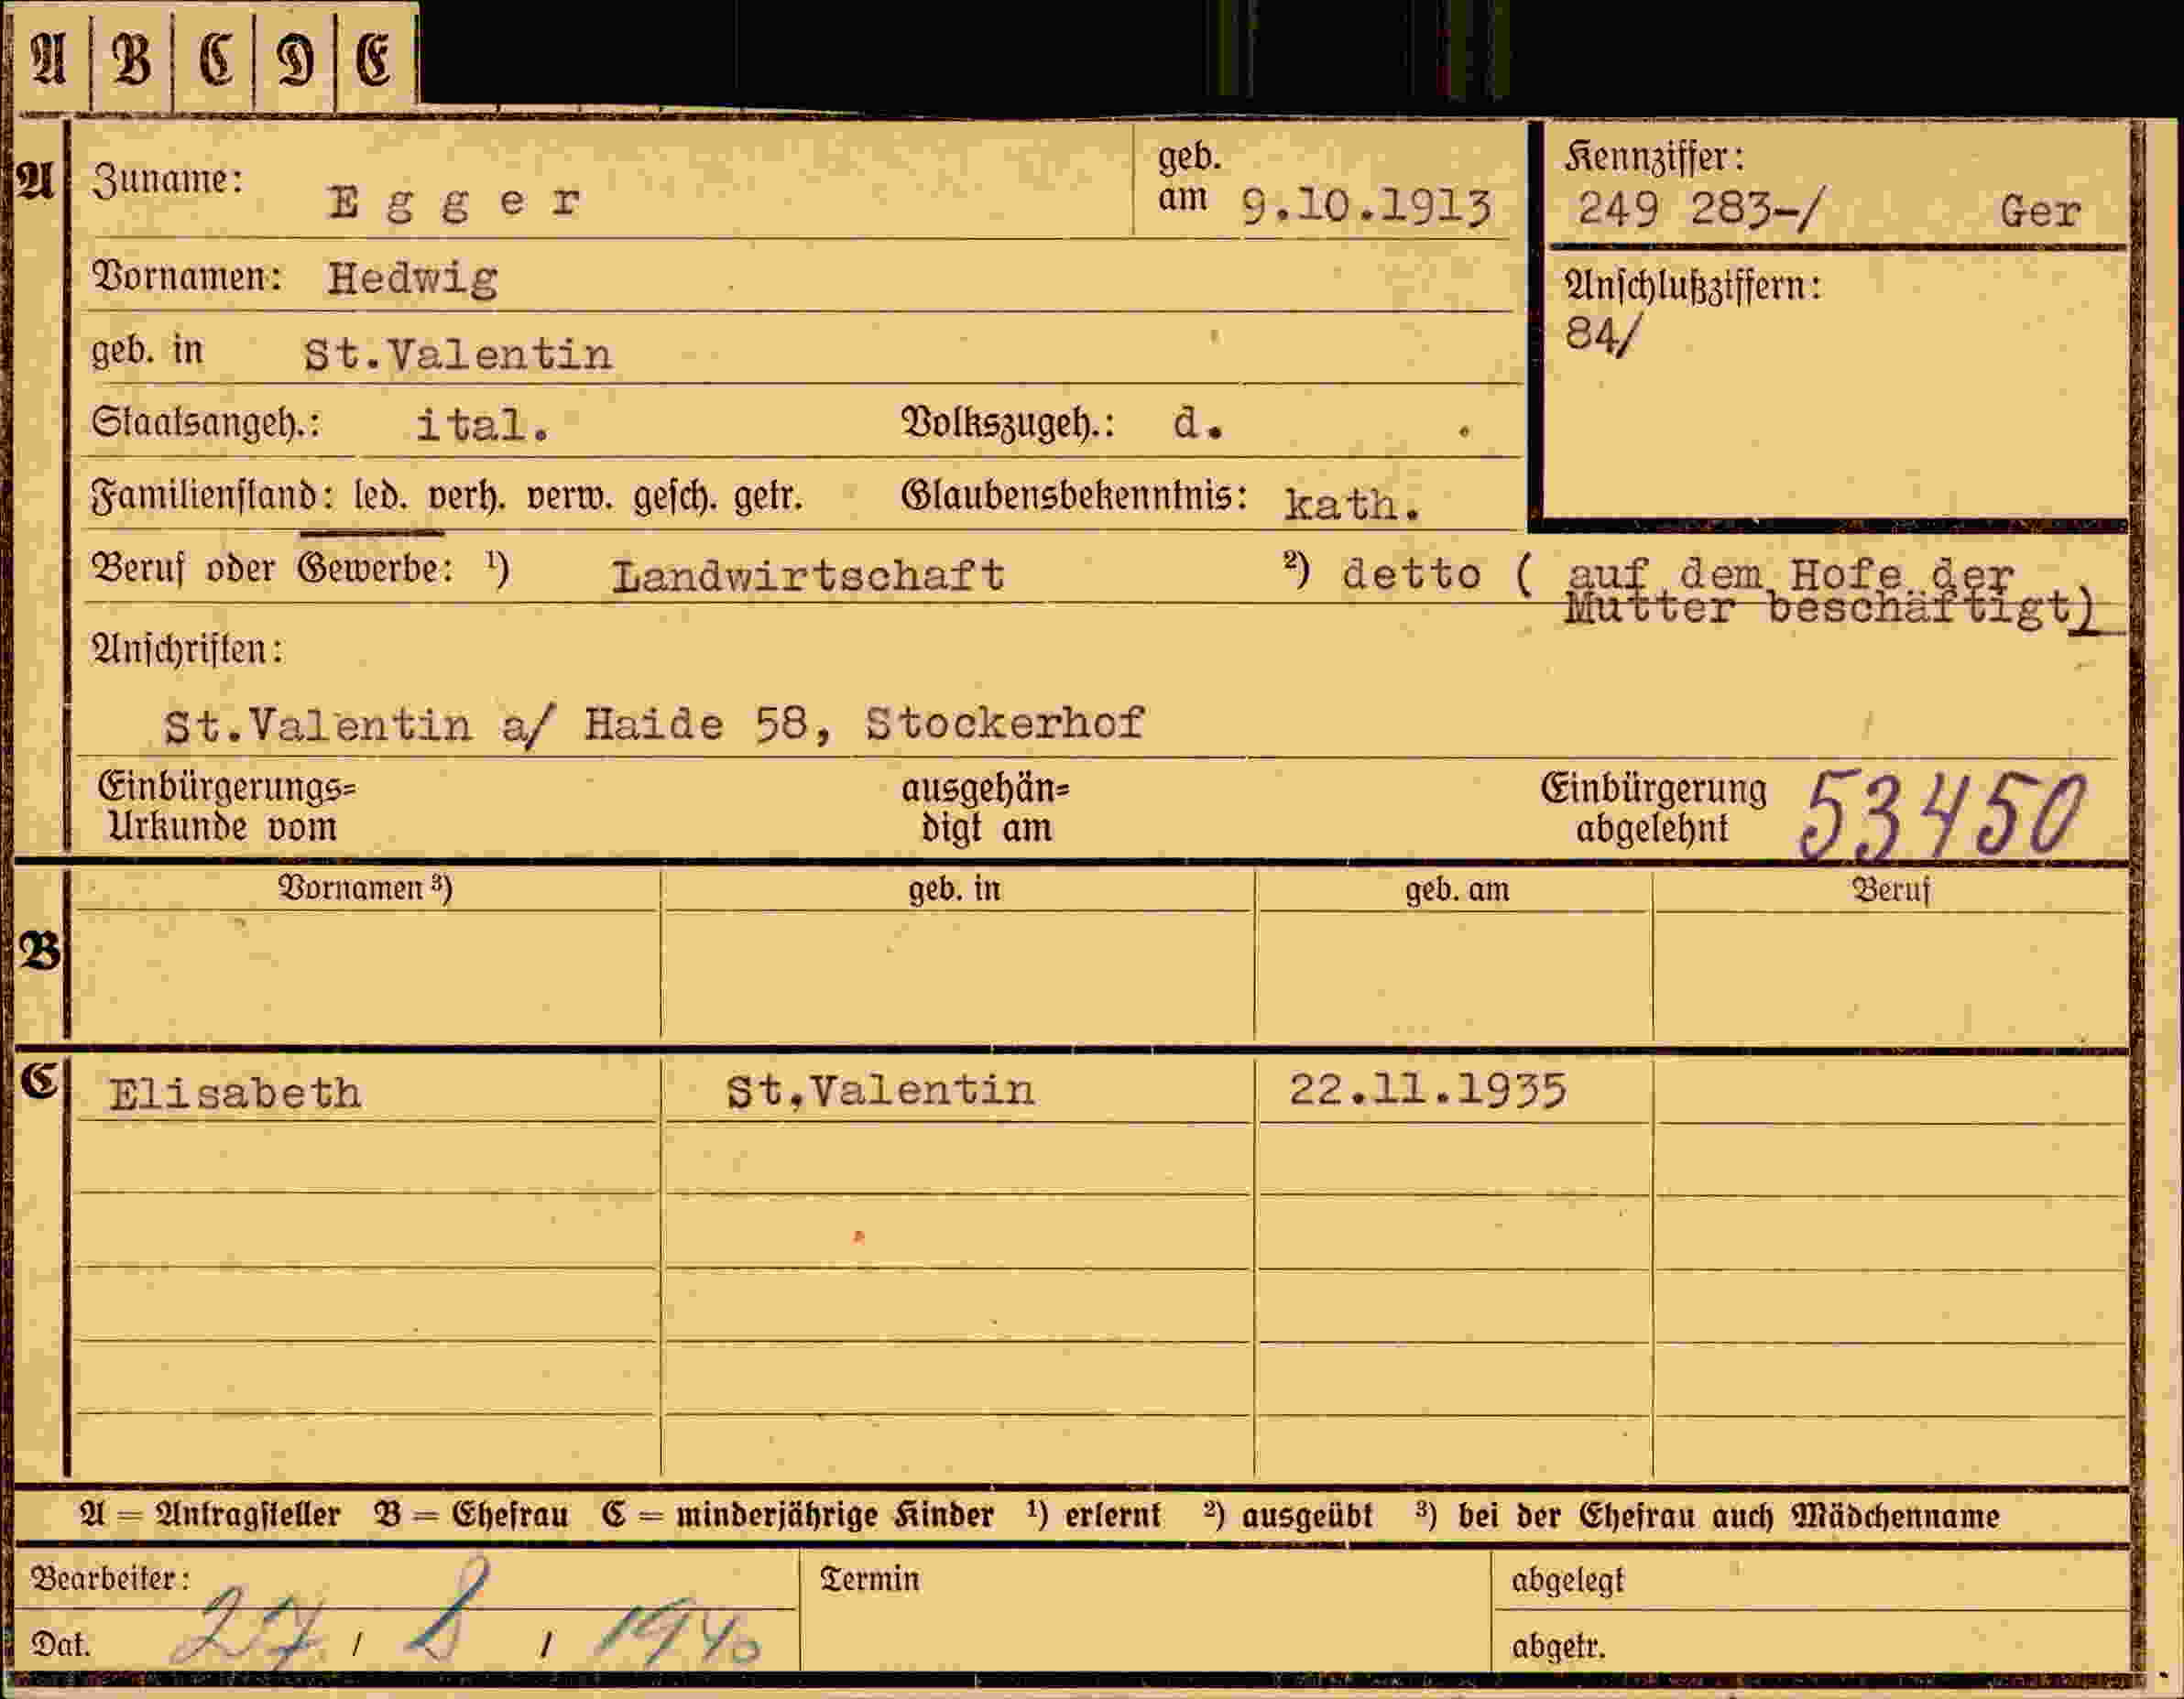 A B C D E
A Zuname: Egger geb. am 9.10.1913 Kennziffer: 249 283-/ Ger
Vornamen: Hedwig Anschlußziffern:
84/
geb. in St.Valentin
Staatsangeh.: ital. Volkszugeh.: d.
Familienstand: led. verh. verw. gesch. getr. Glaubensbekenntnis: kath.
Beruf oder Gewerbe: ¹) Landwirtschaft ²) detto ( auf dem Hofe der
Mutter beschäftigt)
Anschriften:
St.Valentin a/ Haide 58, Stockerhof
Einbürgerungs= ausgehän= Einbürgerung 53450
Urkunde vom digt am abgelehnt
Vornamen ³) geb. in geb. am Beruf
B
C Elisabeth St,Valentin 22.11.1935
A = Antragsteller B = Ehefrau C = minderjährige Kinder ¹) erlernt ²) ausgeübt ³) bei der Ehefrau auch Mädchenname
Bearbeiter: Termin abgelegt
Dat. 27 / 8 / 1940 abgetr.